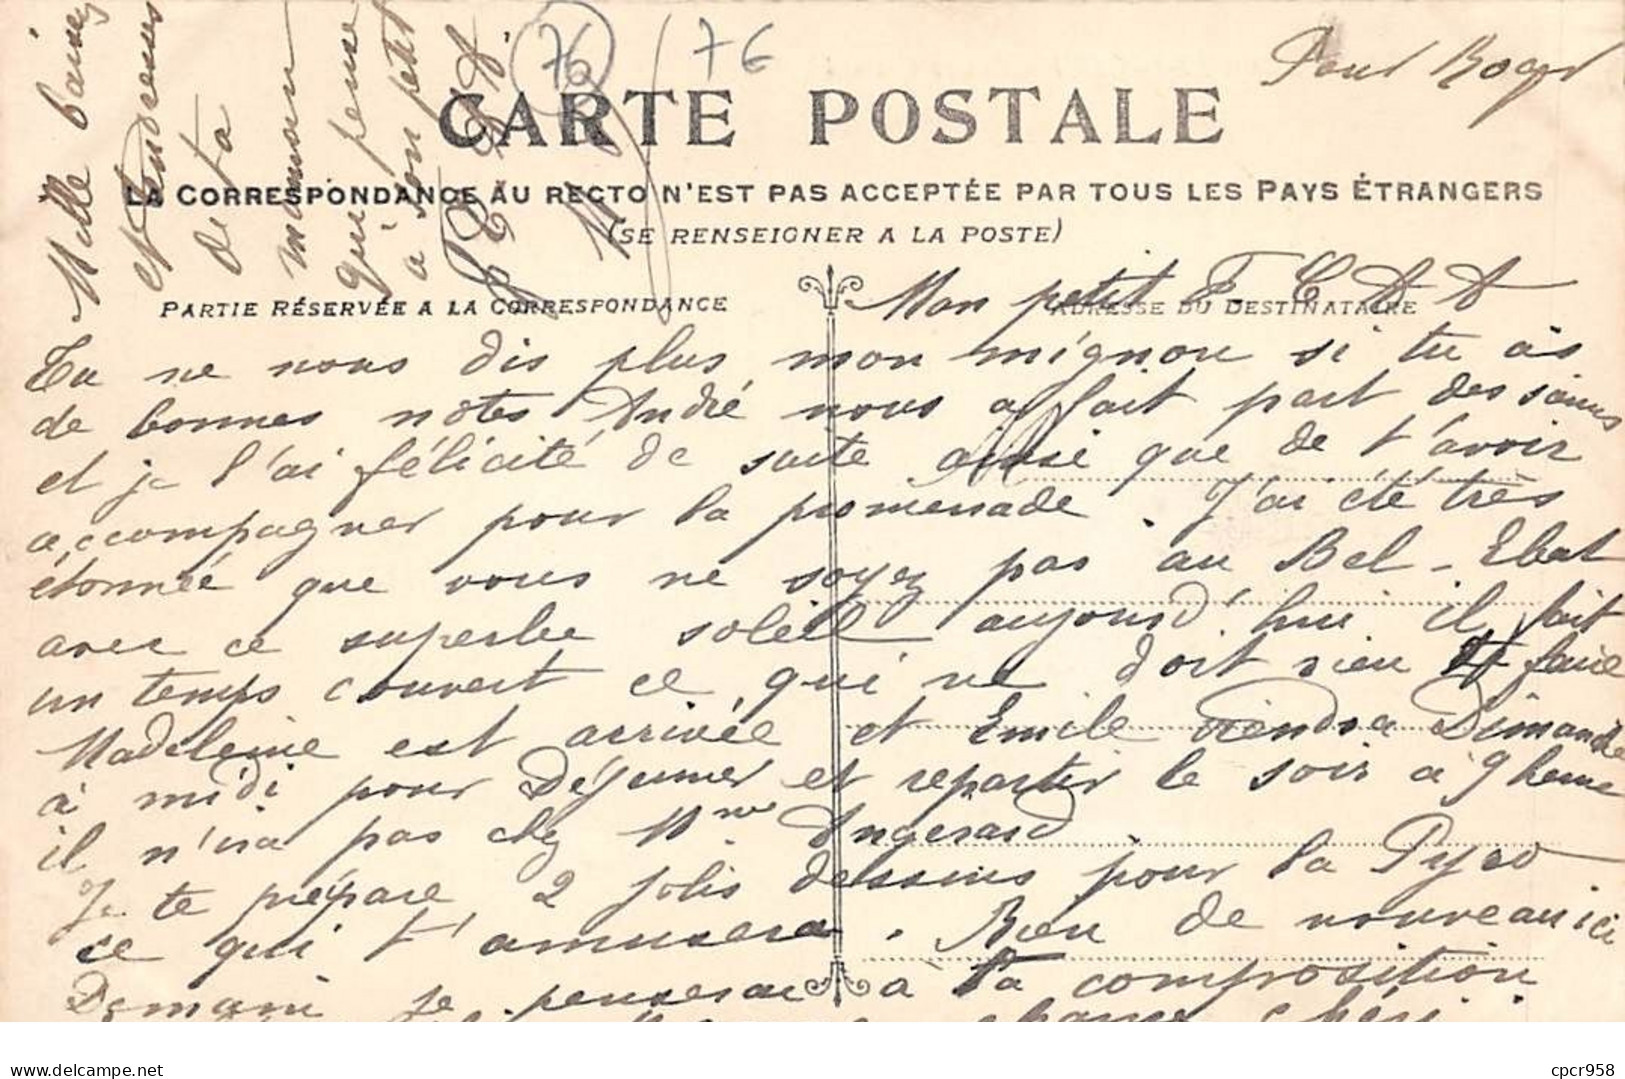 76
76
Paul Roger
CARTE POSTALE
LA CORRESPONDANCE AU RECTO N'EST PAS ACCEPTÉE PAR TOUS LES PAYS ÉTRANGERS
(SE RENSEIGNER A LA POSTE)
PARTIE RÉSERVÉE A LA CORRESPONDANCE
ADRESSE DU DESTINATAIRE
Mon petit F. C A A
Tu ne nous dis plus mon mignon si tu as
de bonnes notes André nous a fait part des siennes
et je l'ai félicité de suite ainsi que de t'avoir
accompagner pour la promenade. J'ai été très
étonnée que vous ne soyez pas au Bel-Ebat
avec ce superbe soleil aujourd'hui il fait
un temps couvert ce qui ne doit rien faire
Madeleine est arrivée et Emile viendra Dimanche
à midi pour Déjeuner et repartir le soir à 9 heure
il n'ira pas chez Mme Angerard
Je te prépare 2 jolis dessins pour la Pyro
ce qui t'amusera. Rien de nouveau ici
Demain je penserai à ta composition
chance chéri
Mille baisers
et tendresses
de ta
maman
qui pense
à son petit
F C A A
M
cpcr958